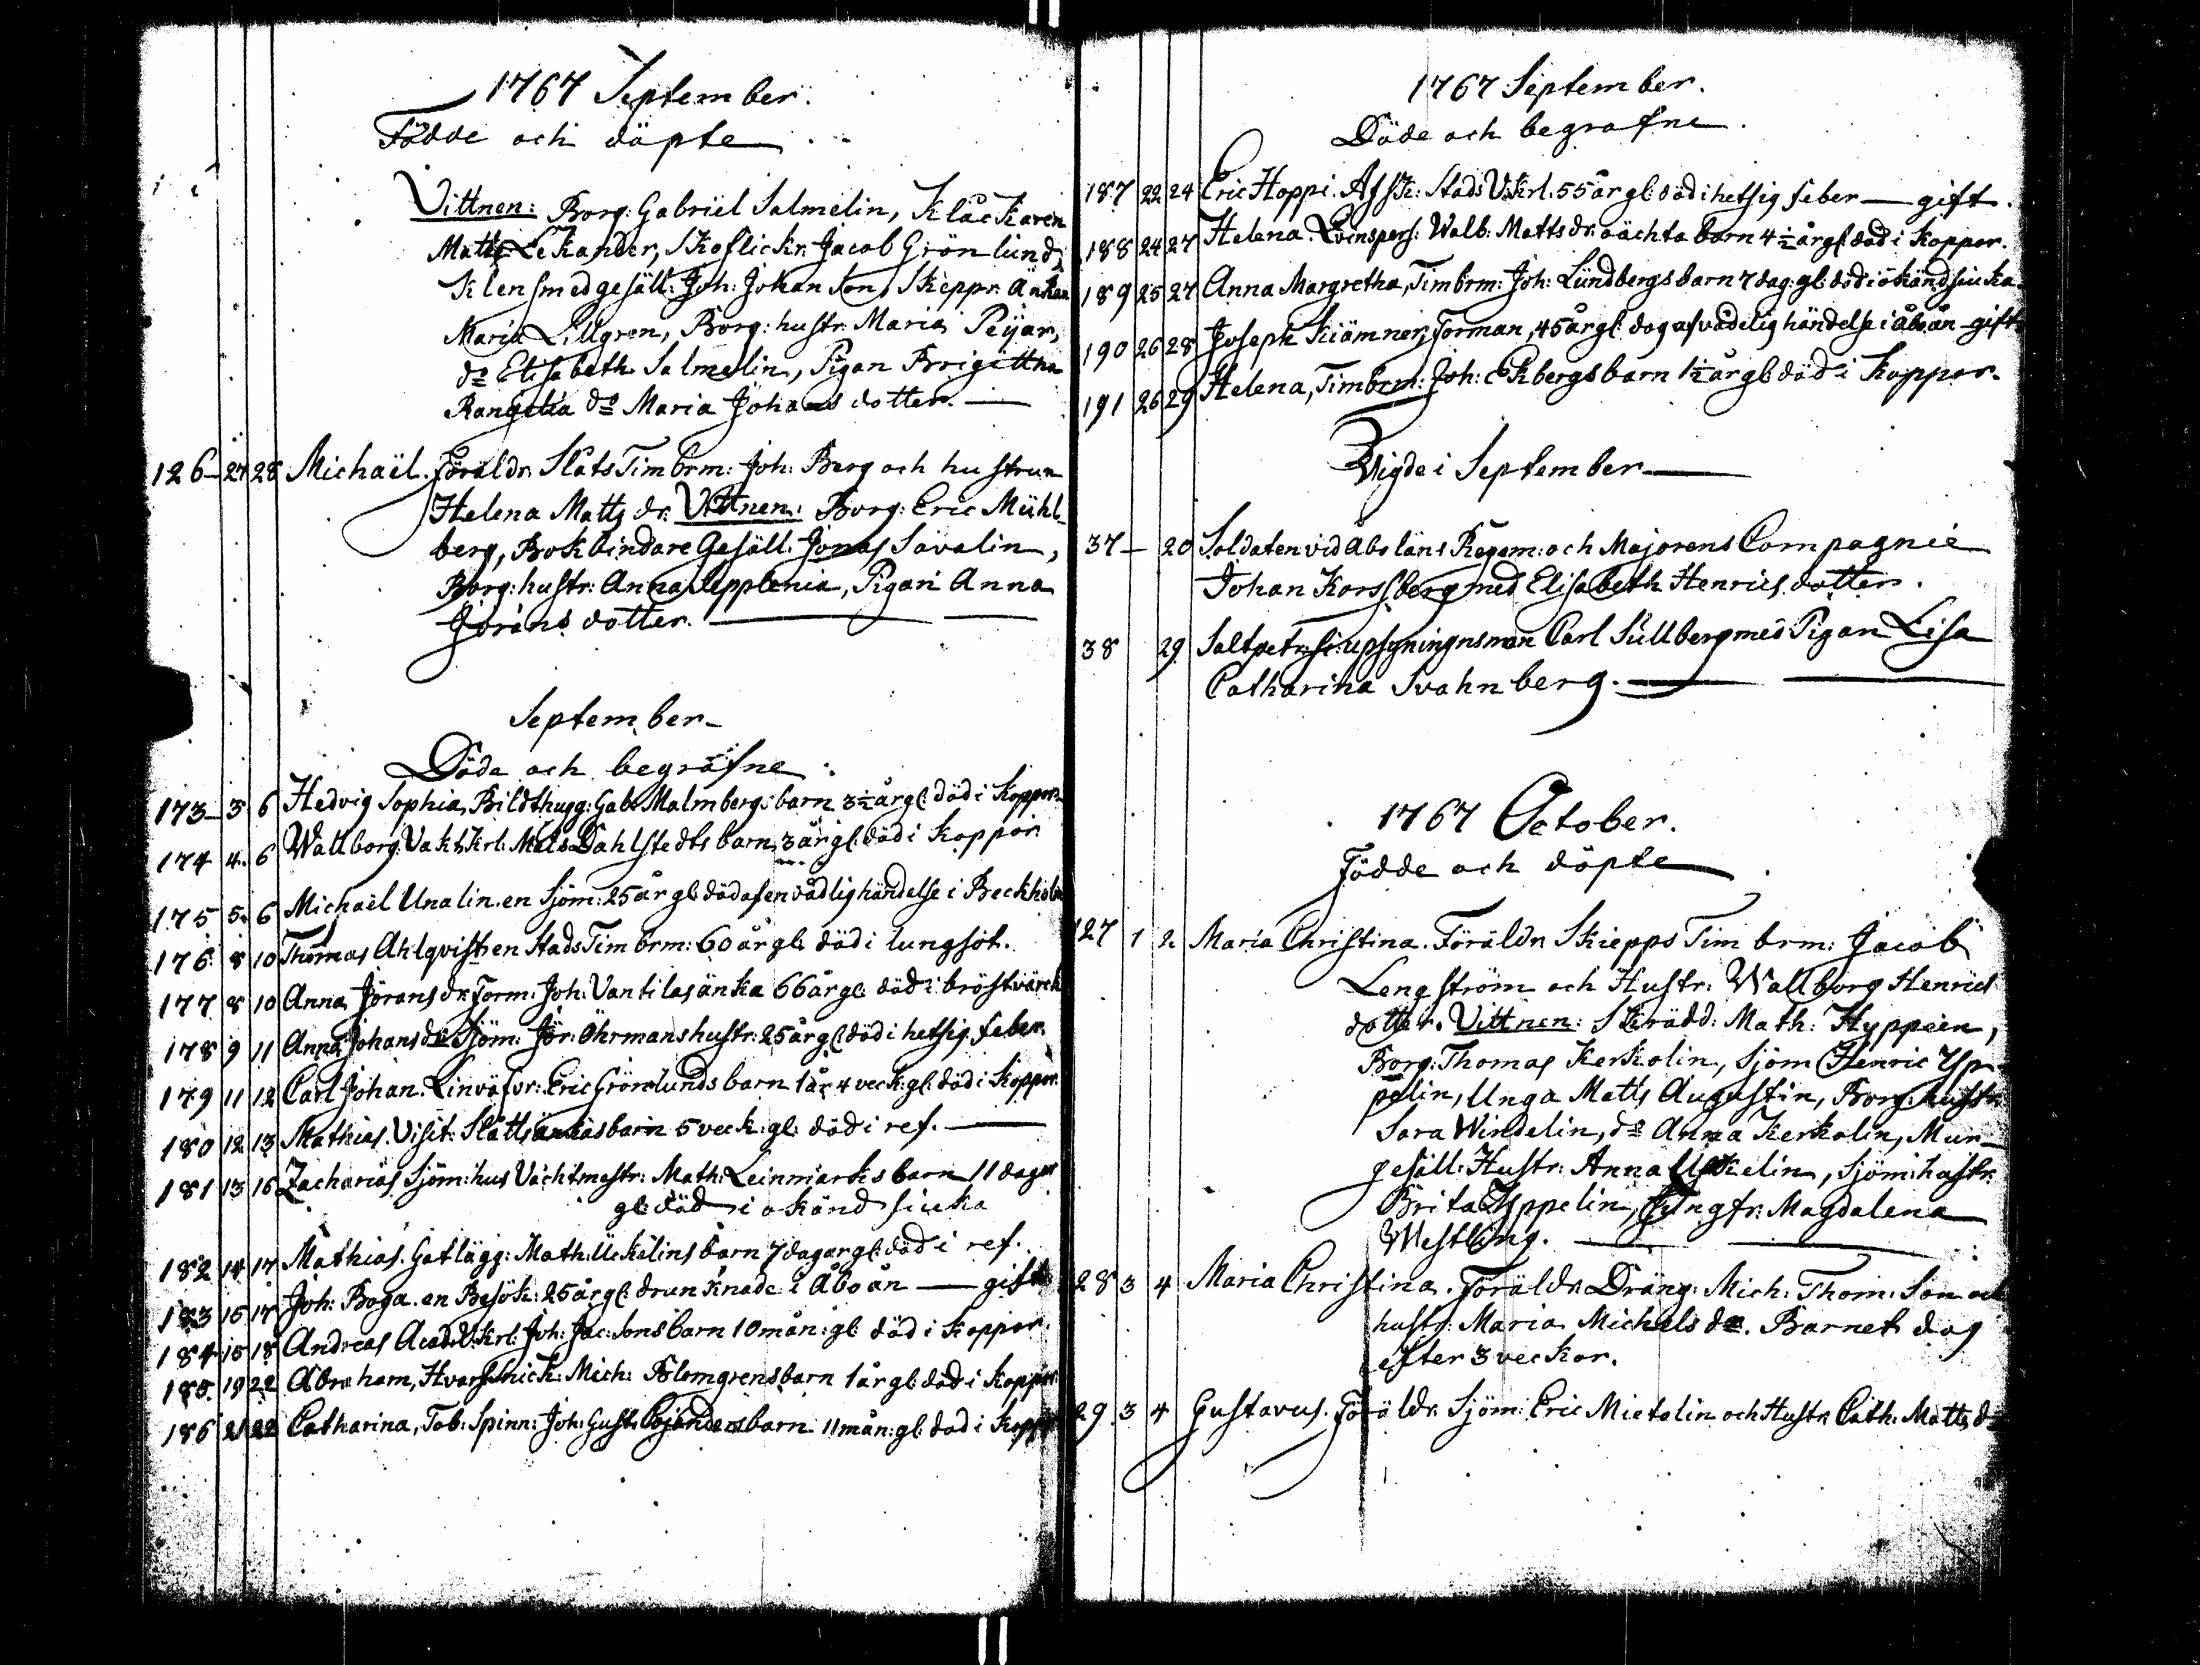 1767 September.
Födde och döpte
Vittnen: Borg: Gabriel Salmelin, Klåckaren
Matts Lekander, Skoflickr. Jacob Grönlund,
Klensmedgesäll: Joh: Johan Son, Skeppr: Änkan
Maria Lillgren, Borg: hustr: Maria Peijar,
do Elisabeth Salmelin, Pigan Brigittha
do Maria Johans dotter.
126 27 28 Michaël. Föräldr. Slåts Timbrm: Joh: Berg och hustrun
Helena Matts dr. Vittnen: Borg: Eric Mühl-
berg, Bokbindare Gesäll: Jonas Savalin,
Borg: hustr: Anna Applenia, Pigan Anna
Jörans dotter.
September
Döda och begrafne.
173 3 6 Hedvig Sophia, Bildthugg: Gab: Malmbergs barn 3½ år gl: död i Koppor.
174 4. 6 Wallborg. Vakt.Krl: Mats Dahlstedts barn 3 år gl: död i Koppor.
175 5. 6 Michaël Unalin. en Sjöm: 25 år gl: död af en vådlig händelse i Beckholm
176 8 10 Thomas Ahlqvist en Stads Timbrm: 60 år gl: död i lungsot.
177 8 10 Anna Jörans dr. Form: Joh: Vantilas änka 66 år gl: död i bröstvärck
178 9 11 Anna Johans dr. Sjöm: Jör: Öhrmans hustr: 25 år gl: död i hetsig feber.
179 11 12 Carl Johan. Linväfvr: Eric Grönlunds barn 1 år 4 veck: gl: död i Koppor.
180 12 13 Mathias. Visit: Slåtts änkas barn 5 veck: gl: död i ref.
181 13 16 Zacharias Sjöm: hus Vachtmestr: Math: Leinmarks barn 11 dagar
gl: död i okänd siuka
182 14 17 Mathias. Gatlägg: Math: Uckelins barn 7 dagar gl: död i ref.
183 15 17 Joh: Boga. en Besök: 25 år gl: drunknade i Åbo ån gift
184 15 18 Andreas Acad:V:Krl: Joh: Jac: Sons barn 10 mån: gl: död i Koppor.
185 19 22 Abraham, Mich: Blomgrens barn 1 år gl: död i Koppor
186 21 22 Catharina, Tob: Spinn: Joh: Gust: Bjanders barn 11 mån: gl: död i Koppor
1767 September.
Döde och begrafne.
187 22 24 Eric Hoppi. Afsk: Stads V:Krl: 55 år gl: död i hetsig feber gift.
188 24 27 Helena. Qvinspers: Walb: Matts dr. oächta barn 4½ år gl: död i Koppor.
189 25 27 Anna Margretha, Timbrm: Joh: Lundbergs barn 7 dag: gl: död i okänd siuka.
190 26 28 Joseph Kiämner, Forman, 45 år gl: dog af vådelig händelse i Åbo ån gift
191 26 29 Helena, Timbrm: Joh: Ekbergs barn 1½ år gl: död i Koppor.
Vigde i September
37 20 Soldaten vid Åbo läns Regem: och Majorens Compagnie
Johan Korssberg med Elisabeth Henrics dotter.
38 29 Carl Sullberg med Pigan Lisa
Catharina Svahnberg.
1767 October.
Födde och döpte
127 1 2 Maria Christina. Föräldr. Skiepps Timbrm: Jacob
Lengström och Hustr: Wallborg Henrics
dotter. Vittnen: Skrädd: Math: Hyppein,
Borg: Thomas Kerkolin, Sjöm Henric Yp-
pelin, Unga Matts Augustin, Borg: hustr:
Sara Windelin, do Anna Kerkolin, Mur-
gesäll: Hustr: Anna Uckelin, Sjöm: hustr:
Brita Yppelin, Jungfr: Magdalena
Westling.
28 3 4 Maria Christina. Föräldr. Dräng: Mich: Thom: Son och
hustr: Maria Michels dr. Barnet dog
efter 3 veckor.
29 3 4 Gustavus. Föräldr. Sjöm: Eric Mietolin och Hustr: Cath: Matts dr